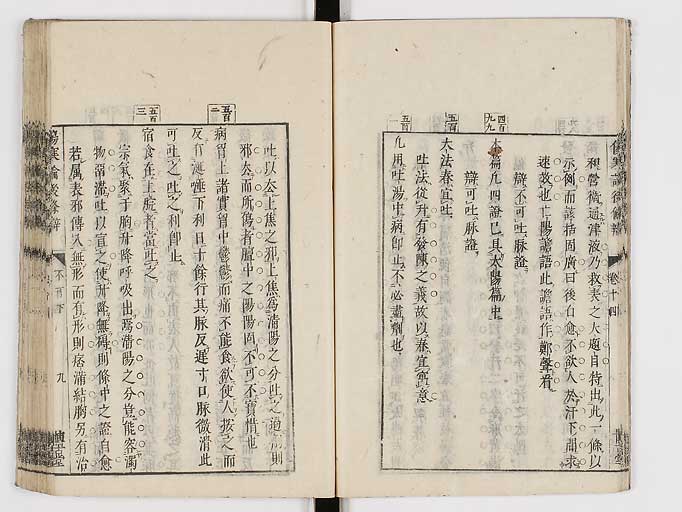 和營衛通津液乃救表之大題自特出此一條以
示例而該括固廣曰後自愈不欲人於汗下間求
速效也亡陽譫語此譫語作鄭聲看
辯不可吐脉證
本篇凡四證已具太陽篇中
辯可吐脉證
大法春宜吐
吐法從升有發陳之義故以春宜寓意
凡用吐湯中病即止不必盡劑也
四百九九
五百
五百一
卷十四
吐以去上焦之邪上焦為清陽之分吐之過則
邪去而所傷者膻中之陽陽固不可不寳惜也
病胷上諸實胷中鬱鬱而痛不能食欲使人按之而
反有涎唾下利日十餘行其脉反遲寸口脉微滑此
可吐之吐之利即止
宿食在上脘者當吐之
宗氣聚于胸升降呼吸出焉清陽之分豈能容濁
物溷滿吐以宣之使升降無碍則條中之證自愈
若屬表邪傳入無形而有形則痞滿結胸另有治
五百二
五百三
傷寒論後條辯
九